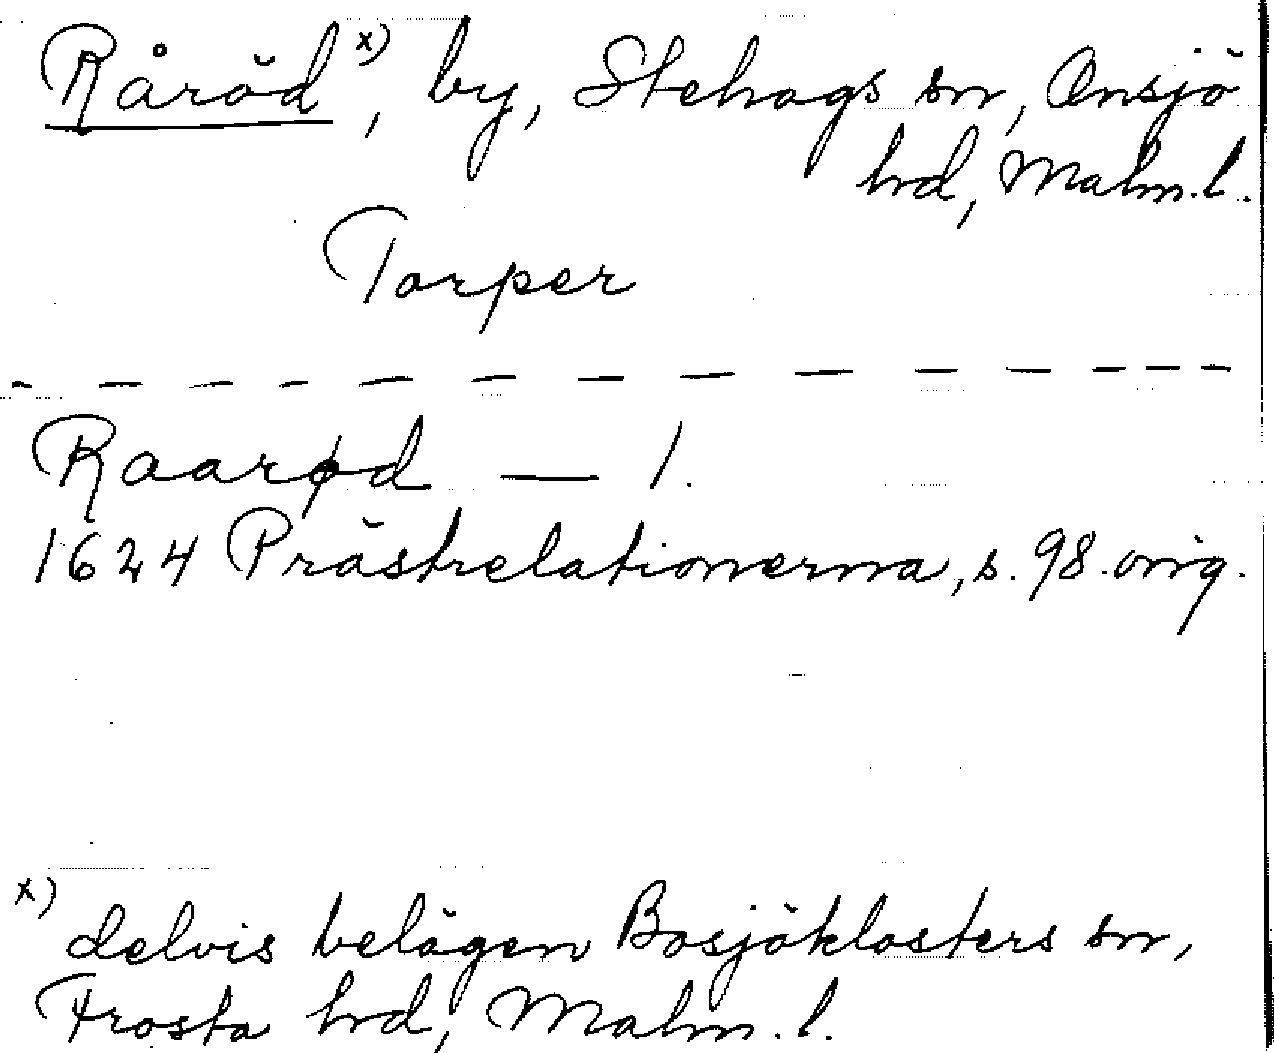 Råröd x), by, Stehags sn, Onsjö
hrd, Malm. l.
Torper
Raarød — 1.
1624 Prästrelationerna, s. 98 orig.
x) delvis belägen Bosjöklosters sn,
Frosta hrd, Malm. l.